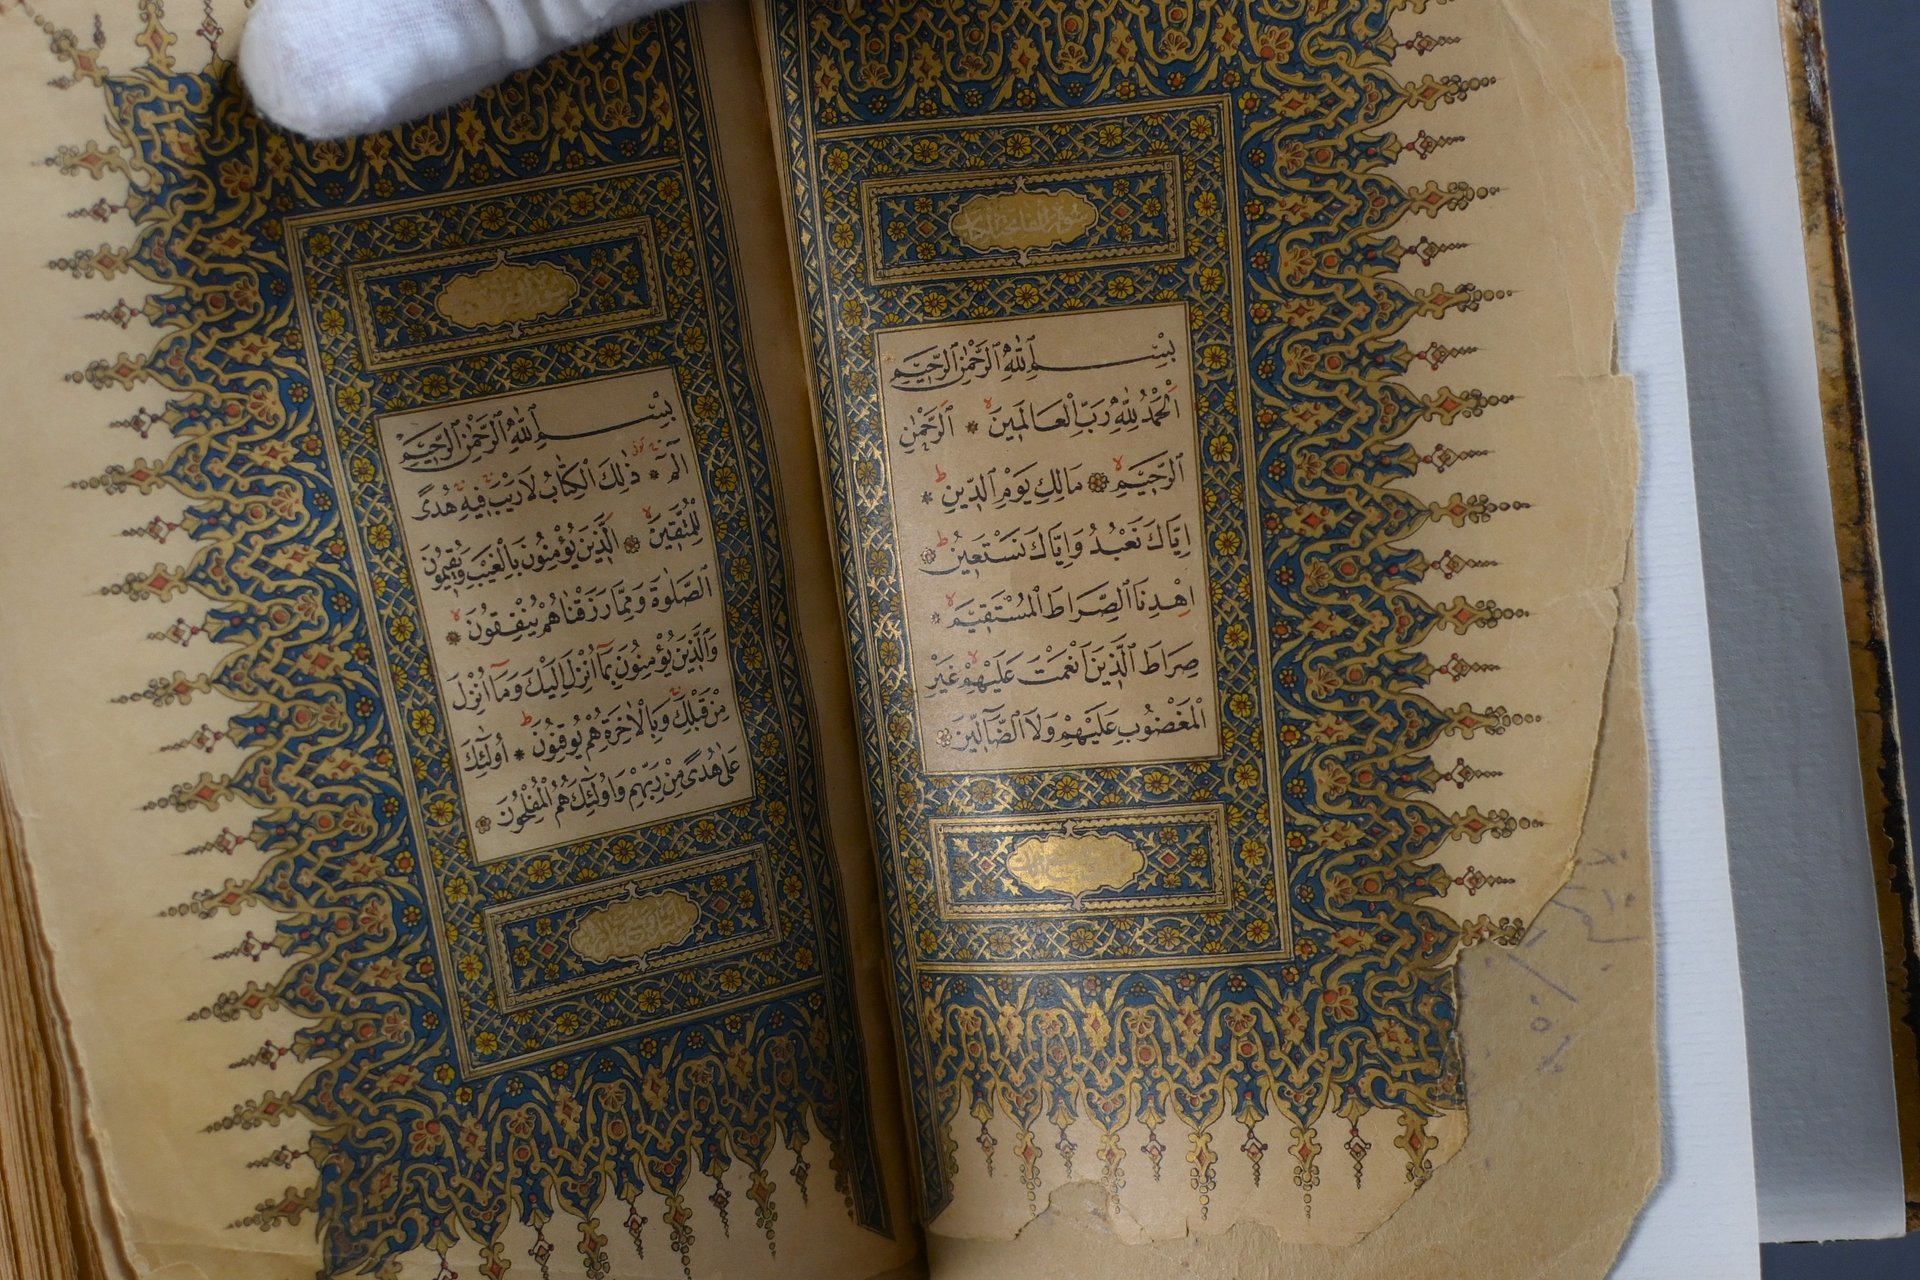 سورة الفاتحة الكتاب
بِسْمِ ٱللّٰهِ ٱلرَّحْمٰنِ ٱلرَّحِيمِ
اَلْحَمْدُ لِلّٰهِ رَبِّ الْعَالَمِينَ ۙ * اَلرَّحْمٰنِ
ٱلرَّحِيمِ ۙ * مَالِكِ يَوْمِ ٱلدِّينِ ط *
اِيَّاكَ نَعْبُدُ وَاِيَّاكَ نَسْتَعِينُ ط *
اِهْدِنَا ٱلصِّرَاطَ الْمُسْتَقِيمَ ۙ *
صِرَاطَ ٱلَّذِينَ اَنْعَمْتَ عَلَيْهِمْ ۙ غَيْرِ
الْمَغْضُوبِ عَلَيْهِمْ وَلَا ٱلضَّآلِّينَ *
بِسْمِ ٱللّٰهِ ٱلرَّحْمٰنِ ٱلرَّحِيمِ
الٓمٓ * ذٰلِكَ الْكِتَابُ لَا رَيْبَ فِيهِ هُدًى
لِلْمُتَّقِينَ ۙ * اَلَّذِينَ يُؤْمِنُونَ بِالْغَيْبِ وَيُقِيمُونَ
الصَّلٰوةَ وَمِمَّا رَزَقْنَاهُمْ يُنْفِقُونَ ۙ *
وَالَّذِينَ يُؤْمِنُونَ بِمَآ اُنْزِلَ اِلَيْكَ وَمَآ اُنْزِلَ
مِنْ قَبْلِكَ وَبِالْاٰخِرَةِ هُمْ يُوقِنُونَ ط * اُولٰٓئِكَ
عَلٰى هُدًى مِنْ رَبِّهِمْ وَاُولٰٓئِكَ هُمُ الْمُفْلِحُونَ *